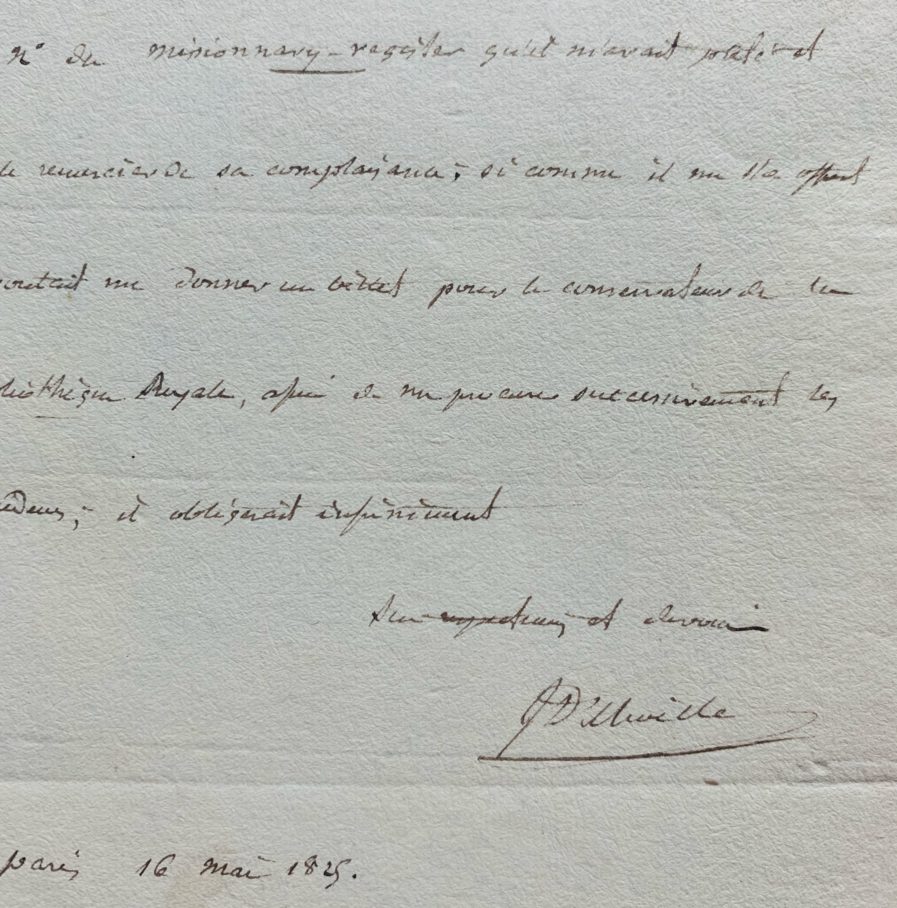 n° du missionnary-register qu'il m'avait prêté et
le remercier de sa complaisance; si comme il me l'a offert
voulait me donner un billet pour le conservateur de la
bliothèque Royale, afin de me procurer successivement les
; il obligerait infiniment
Son et dévoué
J D'Urville
paris 16 mai 1825.